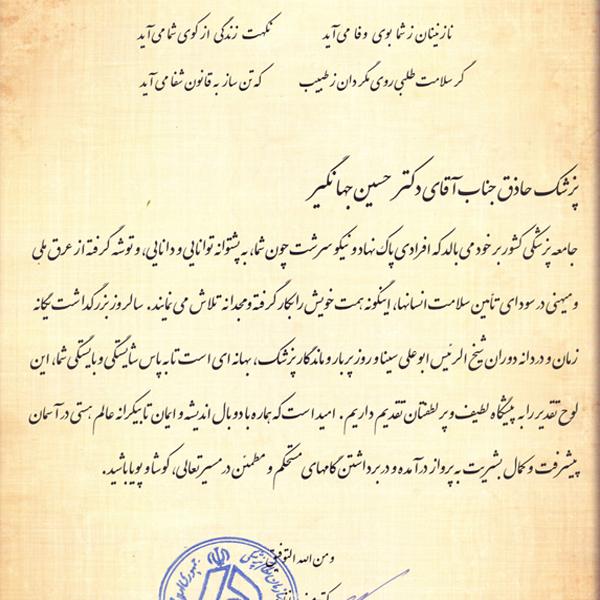 نازنینان ز شما بوی وفا می‌آید نکهت زندگی از کوی شما می‌آید
گر سلامت طلبی روی مگردان ز طبیب که تن ساز به قانون شفا می‌آید
پزشک حاذق جناب آقای دکتر حسین جهانگیر
جامعه پزشکی کشور بر خود می‌بالد که افرادی پاک نهاد و نیکو سرشت چون شما، به پشتوانه توانایی و دانایی، و توشه گرفته از عرق ملی
و میهنی در سودای تأمین سلامت انسانها، اینگونه همت خویش را بکار گرفته و مجدانه تلاش می‌نمایند. سالروز بزرگداشت یگانه
زمان و دردانه دوران شیخ الرئیس ابوعلی سینا و روز پربار و ماندگار پزشک، بهانه ای است تا به پاس شایستگی و بایستگی شما، این
لوح تقدیر را به پیشگاه لطیف و پر لطفتان تقدیم داریم. امید است که هماره با دو بال اندیشه و ایمان تا بیکرانه عالم هستی در آسمان
پیشرفت و کمال بشریت به پرواز درآمده و در برداشتن گامهای مستحکم و مطمئن در مسیر تعالی، کوشا و پویا باشید.
و من الله التوفیق